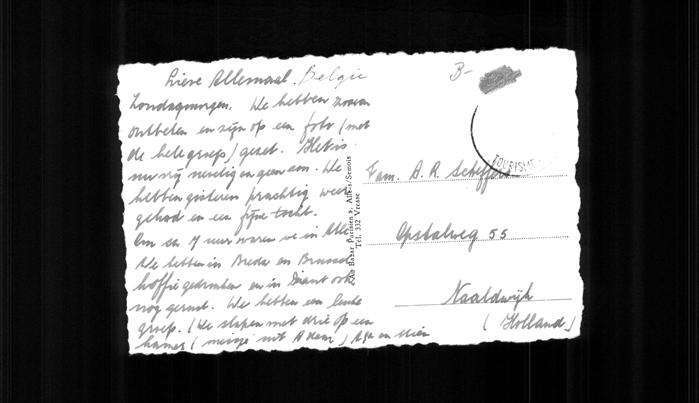 Lieve Allemaal. België
Zondagmorgen. We hebben zowan
ontbeten en zijn op een foto (met
de hele groep) gezet. Het is
nu vrij neuig en geen zon. We
hebben gisteren prachtig weer
gehad en een fijne tocht.
Om een 7 uur waren we in Alle
We hebben in Breda en Brussel
koffie gedronken en in Dinant ook
nog gerust. We hebben een leuke
groep. (We slapen met drie op een
kamer (
B-
TOURISME
Fam. A. R. Scheffers
Opstalweg 55
Naaldwijk
(Holland)
Au Bazar Parisien a. Alle s/Semois
Tel. 332 Vresse